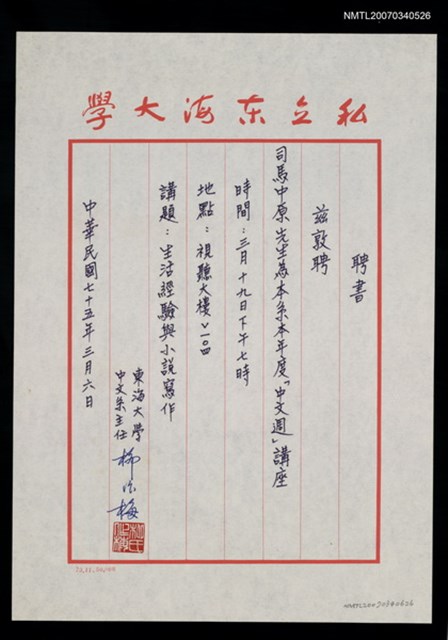 NMTL20070340526
私立东海大學
聘書
茲敦聘
司馬中原先生為本系本年度「中文週」講座
時間：三月十九日下午七時
地點：視聽大樓V一〇四
講題：生活經驗與小說寫作
東海大學
中文系主任
中華民國七十五年三月六日
NMTL20070340526